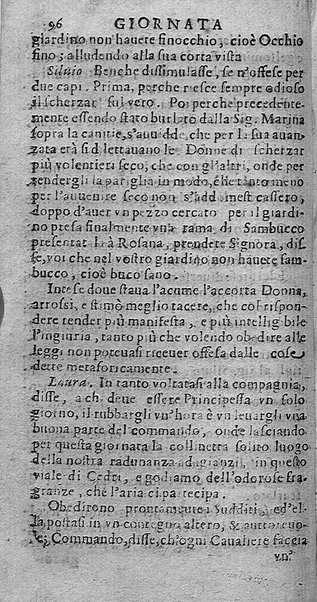 96 GIORNATA
giardino non hauete finocchio, cioè Occhio
fino; alludendo alla sua corta vista
Siluio. Benche dissimulasse, se n'offese per
due capi. Prima, perche riesce sempre odioso
il scherzar sul vero. Poi perche precedente-
mente essendo stato burlato dalla Sig. Marina
sopra la canitie, s'auuidde, che per la sua auan-
zata età si dilettauano le Donne di scherzar
più volentieri seco, che con gl'altri, onde per
rendergli la pariglia in modo, che tanto meno
per l'auuenire seco non s'addomesticassero,
doppo d'auer vn pezzo cercato per il giardi-
no presa finalmente vna rama di Sambucco
presentatala à Rosana, prendete Signora, dis-
se, voi che nel vostro giardino non hauete sam-
bucco, cioè buco sano.
Intese doue staua l'acume l'accorta Donna,
arrossì, e stimò meglio tacere, che col rispon-
dere render più manifesta, e più intelligibile
l'ingiuria, tanto più che volendo obedire alle
leggi non poteuasi riceuer offesa dalle cose
dette metaforicamente.
Laura. In tanto voltatasi alla compagnia,
disse, a chi deue essere Principessa vn solo
giorno, il rubbargli vn'hora è vn leuargli vna
buona parte del commando, onde lasciando
per questa giornata la collinetta solito luogo
della nostra radunanza adagianzi in questo
viale di Cedri, e godiamo dell'odorose fra-
granze, che l'aria ci partecipa.
Obedirono prontamente i Sudditi, ed'el-
la postasi in vn contegno altero, & auttoreuo-
le; Commando, disse, ch'ogni Caualiere faccia
vn'